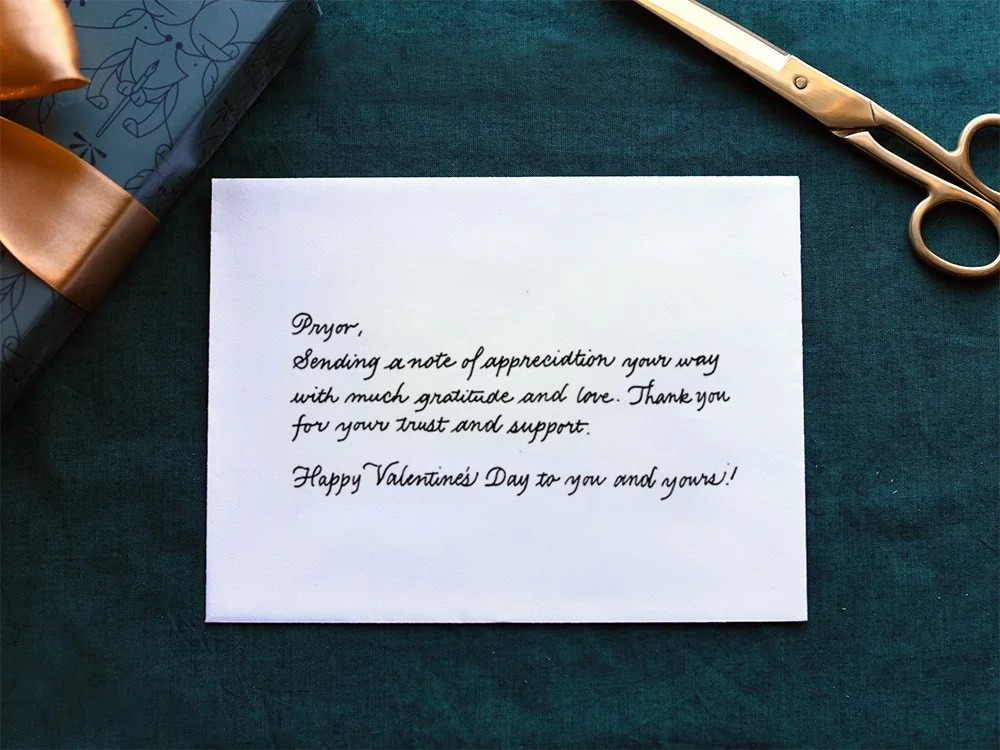 Pryor,
Sending a note of appreciation your way
with much gratitude and love. Thank you
for your trust and support.
Happy Valentine's Day to you and yours!